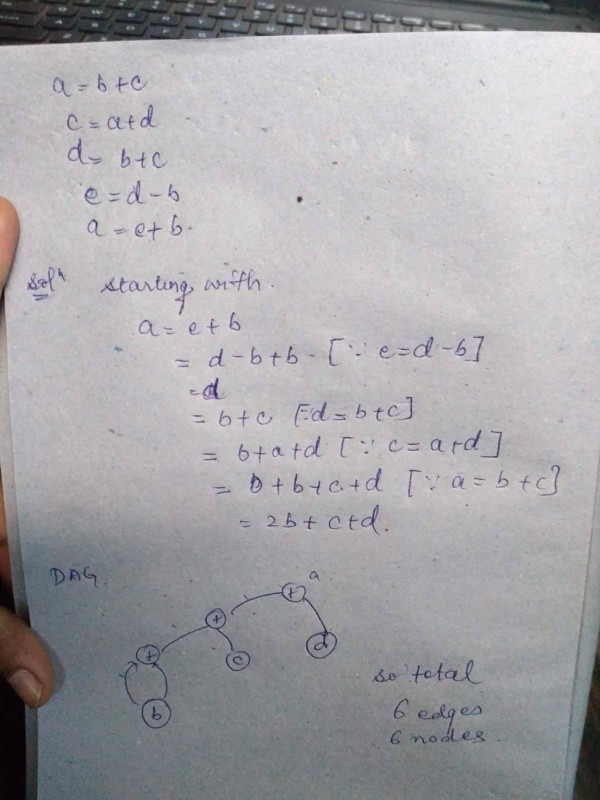 a = b+c
c = a+d
d = b+c
e = d-b
a = e+b.
Solⁿ starting with.
a = e+b
= d-b+b- [∵ e=d-b]
=d
= b+c [∵d=b+c]
= b+a+d [∵ c=a+d]
= b+b+c+d [∵ a=b+c]
= 2b+c+d.
DAG.
a
+
+
d
+
c
b
so total
6 edges
6 nodes.